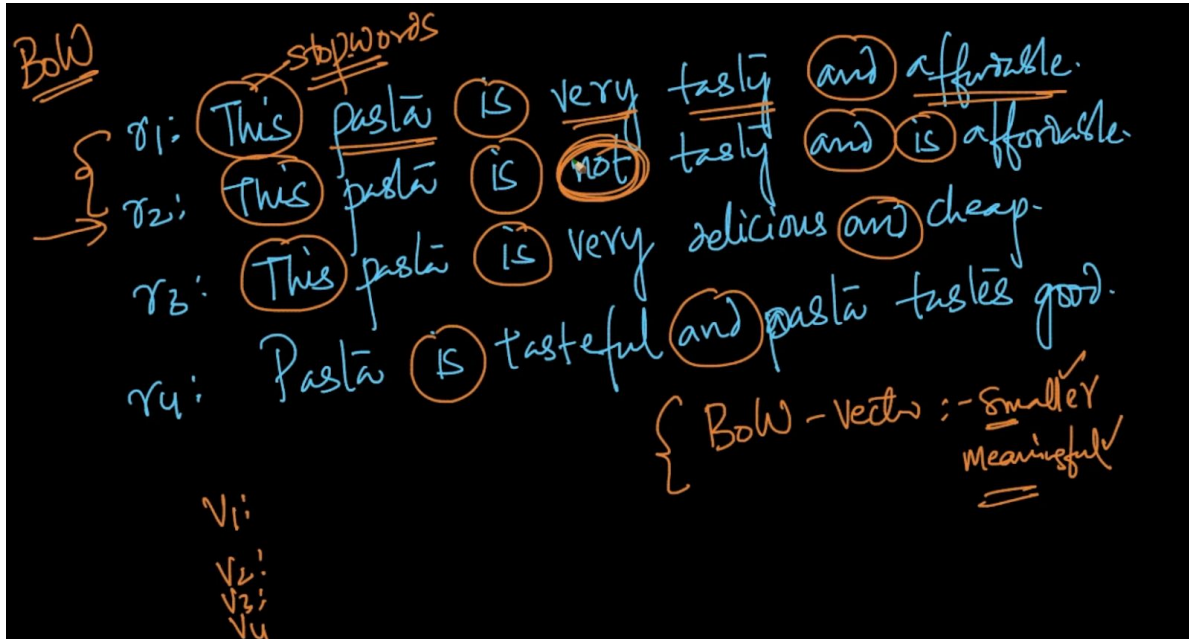 BoW
stopwords
r1: This pasta is very tasty and affordable.
r2: This pasta is not tasty and is affordable.
r3: This pasta is very delicious and cheap.
r4: Pasta is tasteful and pasta tastes good.
{ BoW - Vector :- Smaller ✓
meaningful ✓
V1:
V2:
V3:
V4